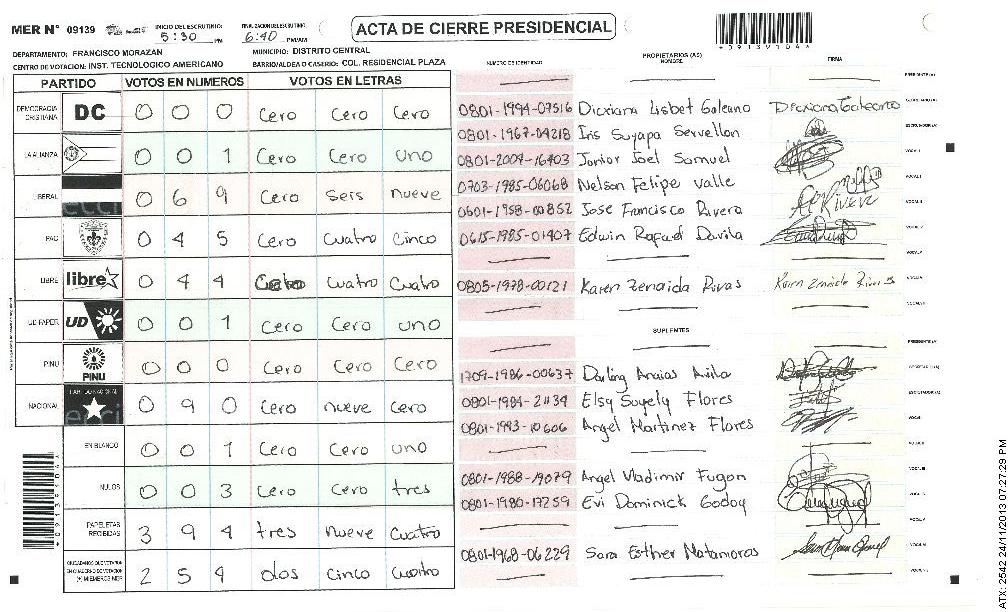 MER N° 09139 INICIO DEL ESCRUTINIO: 5:30 PM FINALIZACION DEL ESCRUTINIO: 6:40 PM/AM ACTA DE CIERRE PRESIDENCIAL
DEPARTAMENTO: FRANCISCO MORAZAN MUNICIPIO: DISTRITO CENTRAL
CENTRO DE VOTACION: INST. TECNOLOGICO AMERICANO BARRIO/ALDEA O CASERIO: COL. RESIDENCIAL PLAZA
PARTIDO VOTOS EN NUMEROS VOTOS EN LETRAS
DEMOCRACIA CRISTIANA DC 0 0 0 Cero Cero Cero
LA ALIANZA 0 0 1 Cero Cero uno
BERAL 0 6 9 Cero Seis nueve
PAC 0 4 5 Cero Cuatro Cinco
LIBRE libre 0 4 4 Cuatro Cuatro
UD-FAPER UD 0 0 1 Cero Cero uno
PINU PINU 0 0 0 Cero Cero Cero
NACIONAL PARTIDO NACIONAL 0 9 0 Cero nueve Cero
EN BLANCO 0 0 1 Cero Cero uno
NULOS 0 0 3 Cero Cero tres
PAPELETAS RECIBIDAS 3 9 4 tres nueve Cuatro
CIUDADANOS QUE VOTARON EN CUADERNO DE VOTACION (+) MIEMBROS MER 2 5 4 dos cinco cuatro
NUMERO DE IDENTIDAD PROPIETARIOS (AS) NOMBRE FIRMA
PRESIDENTE (A)
0801-1994-07516 Dicxiana Lisbet Galeano Dicxiana Galeano SECRETARIO (A)
0801-1967-04218 Iris Suyapa Servellon ESCRUTADOR (A)
0801-2004-16403 Junior Joel Samuel VOCAL I
0703-1985-06068 Nelson Felipe valle VOCAL II
0601-1958-00852 Jose Francisco Rivera VOCAL III
0615-1985-01407 Edwin Rafael Davila VOCAL IV
VOCAL V
0805-1978-00121 Karen Zenaida Rivas Karen Zenaida Rivas VOCAL VI
VOCAL VII
SUPLENTES
PRESIDENTE (A)
1709-1986-00637 Darling Avila SECRETARIO (A)
0801-1984-21134 Elsy Suyely Flores ESCRUTADOR (A)
0801-1993-10606 Angel Martinez Flores VOCAL I
VOCAL II
0801-1988-19079 Angel Vladimir Fugon VOCAL III
0801-1980-17259 Evi Dominick Godoy VOCAL IV
VOCAL V
0801-1968-06229 Sara Esther Matamoros VOCAL VI
VOCAL VII
ATX: 2542 24/11/2013 07:27:29 PM